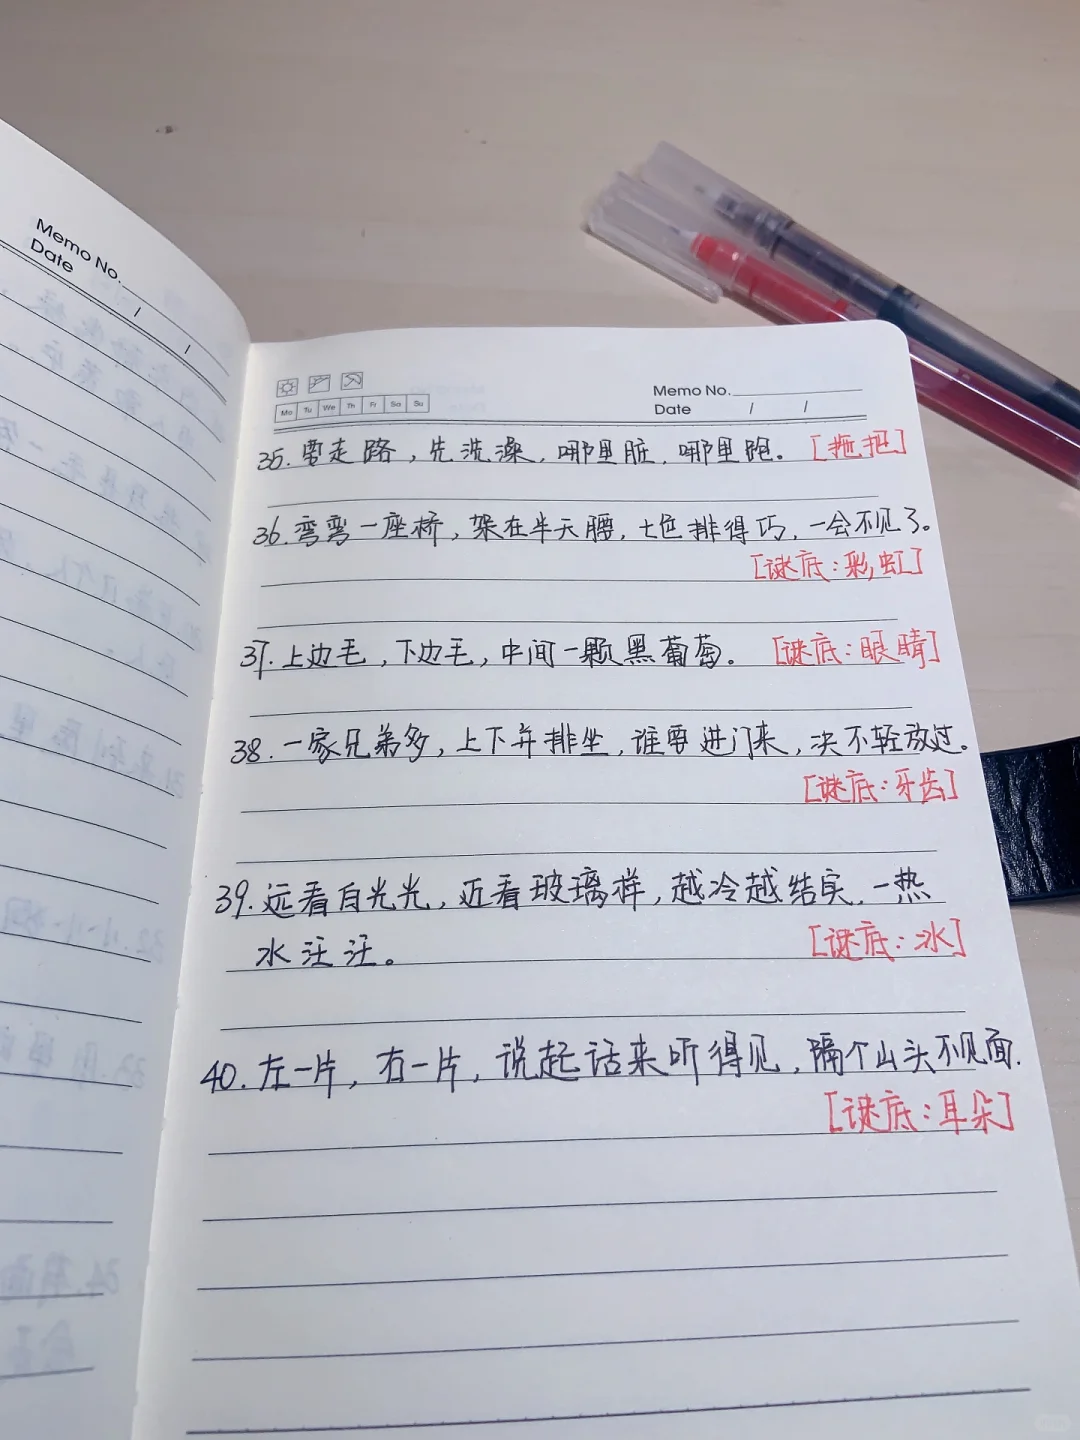 Memo No.
Date / /
Memo No.
Date / /
Mo Tu We Th Fr Sa Su
35. 要走路，先洗澡，哪里脏，哪里跑。[拖把]
36. 弯弯一座桥，架在半天腰，七色排得巧，一会不见了。
[谜底：彩虹]
37. 上边毛，下边毛，中间一颗黑葡萄。[谜底：眼睛]
38. 一家兄弟多，上下并排坐，谁要进门来，决不轻放过。
[谜底：牙齿]
39. 远看白光光，近看玻璃样，越冷越结实，一热
水汪汪。[谜底：冰]
40. 左一片，右一片，说起话来听得见，隔个山头不见面.
[谜底：耳朵]